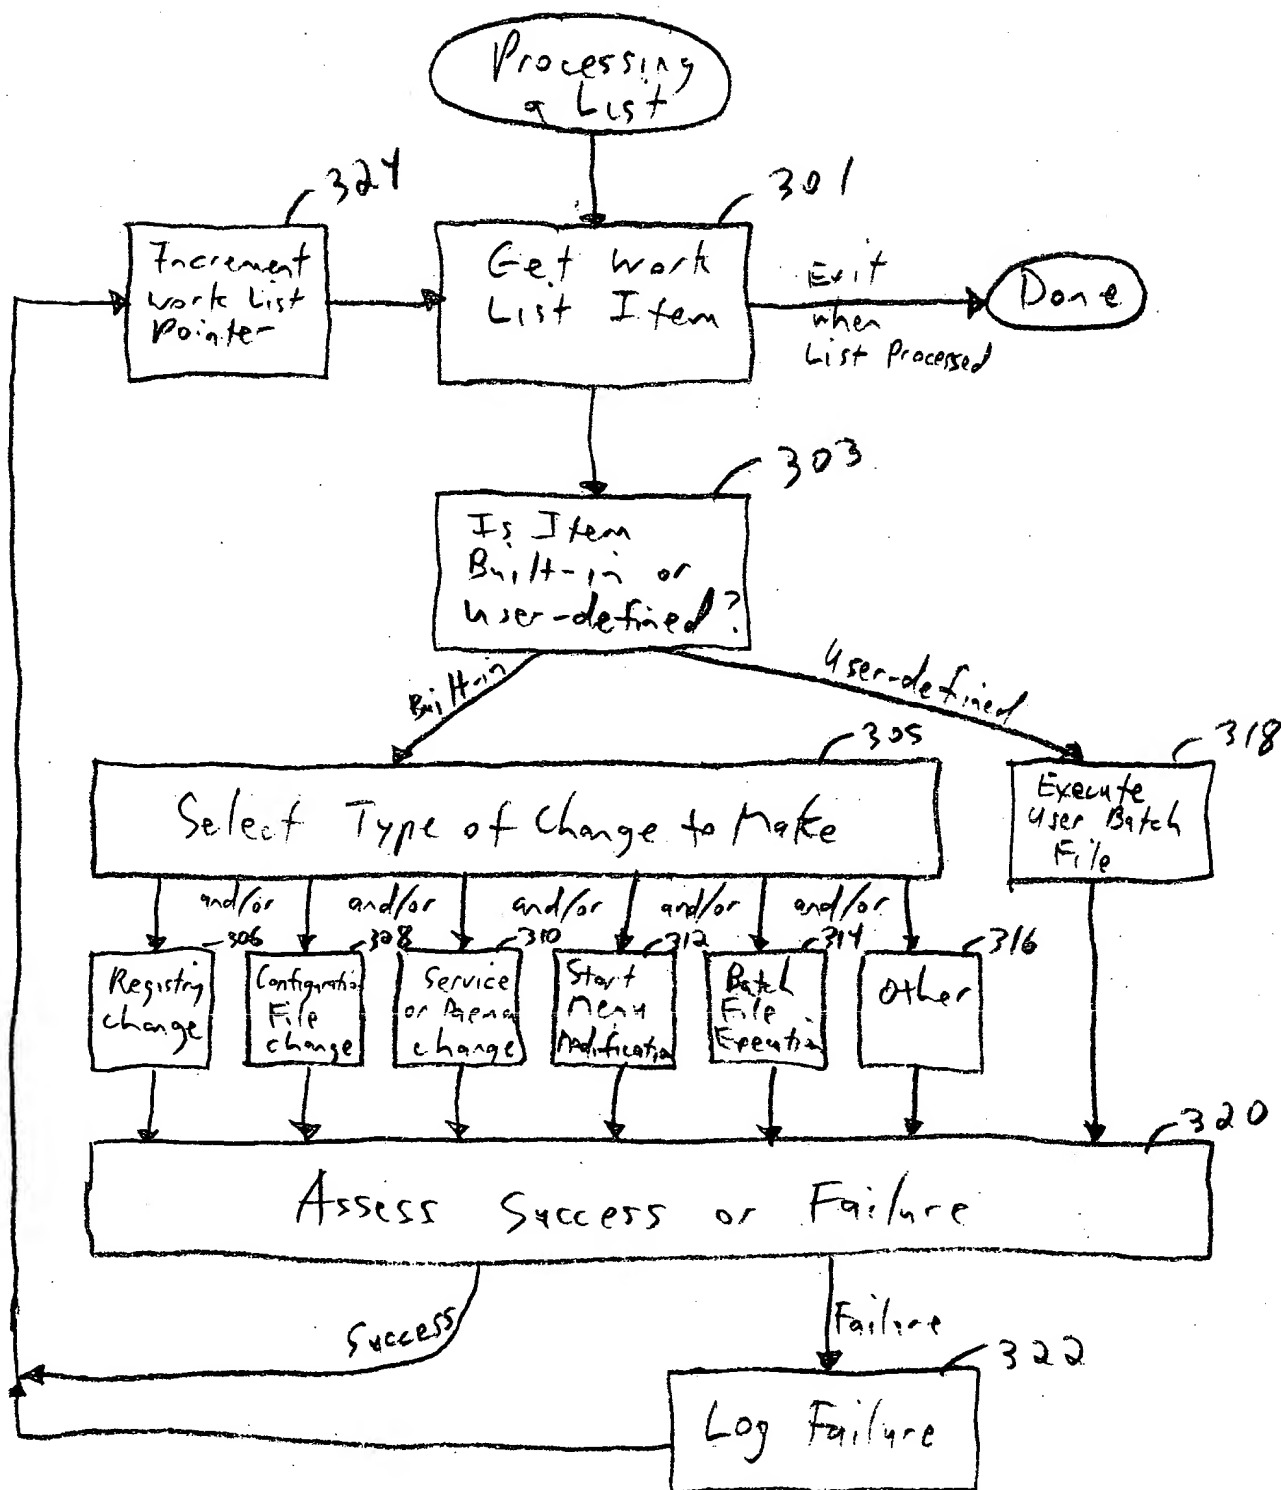 Processing
a List
324
301
Increment
Work List
Pointer
Get Work
List Item
Exit
when
List Processed
Done
303
Is Item
Built-in or
User-defined?
Built-in
User-defined
305
318
Select Type of Change to Make
Execute
User Batch
File
and/or and/or and/or and/or and/or
306 308 310 312 314 316
Registry
Change
Configuration
File
change
Service
or Daemon
change
Start
Menu
Modification
Batch
File
Execution
Other
320
Assess Success or Failure
Success
Failure
322
Log Failure